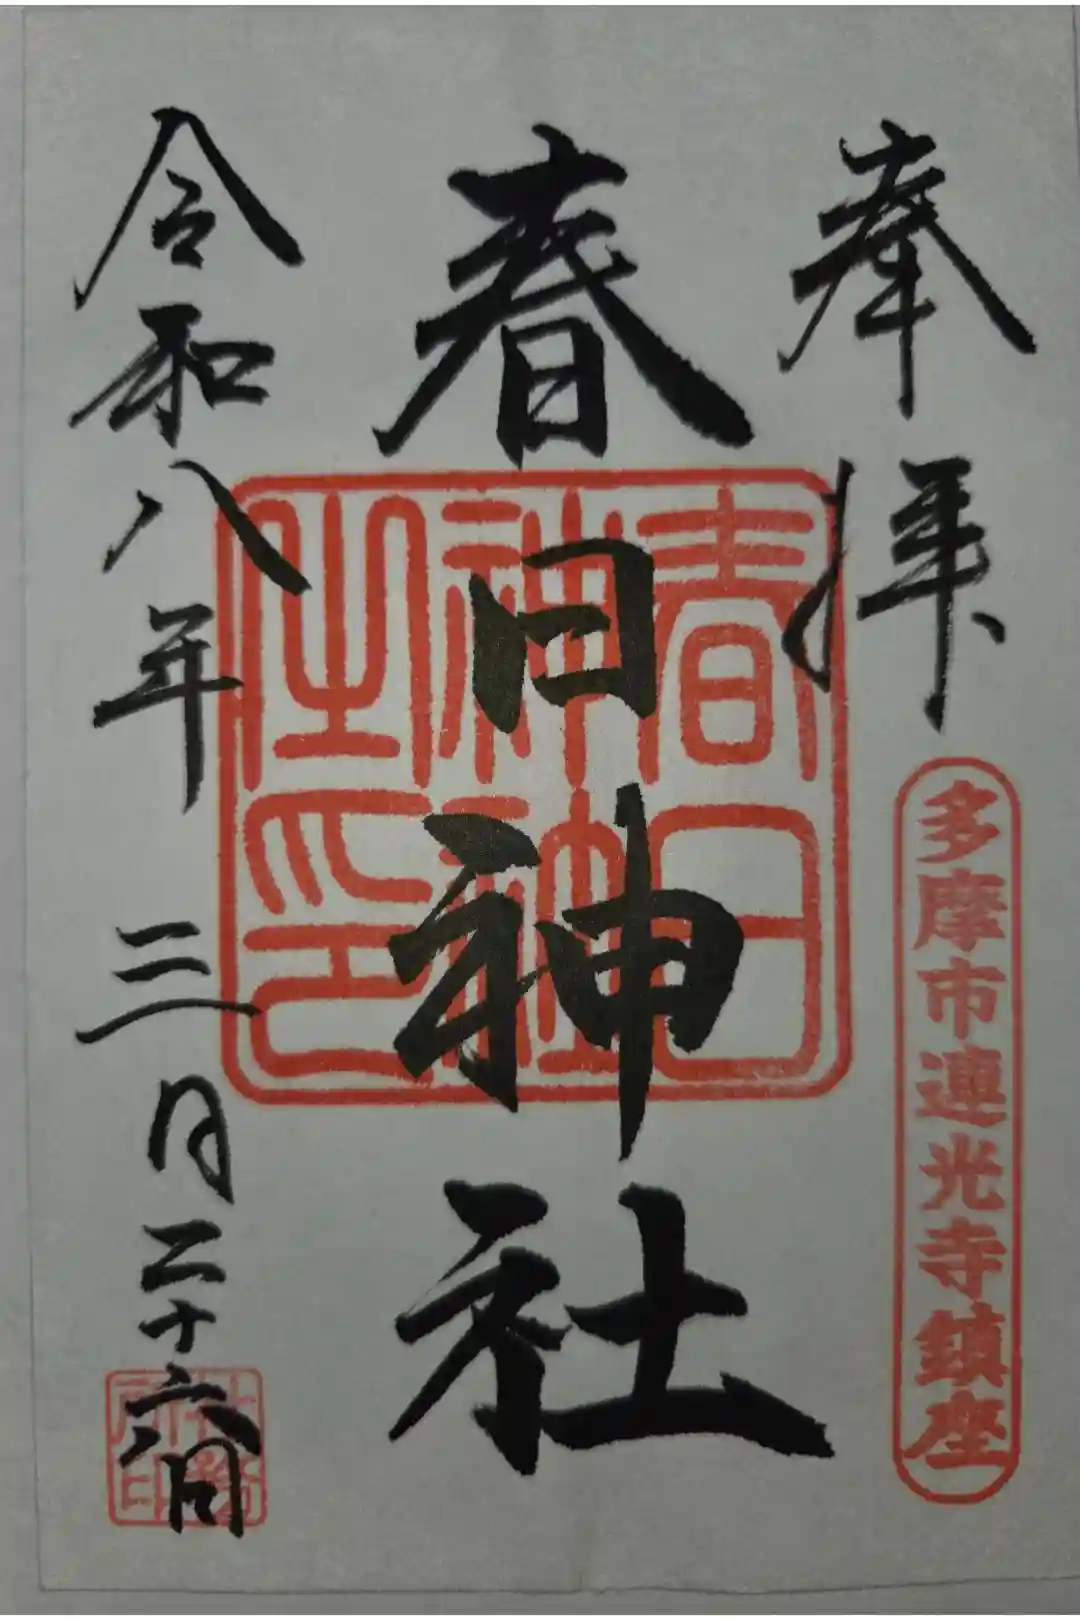 奉拝
多摩市連光寺鎮座
春日神社
春日神社之印
令和八年三月二十六日
社務所印